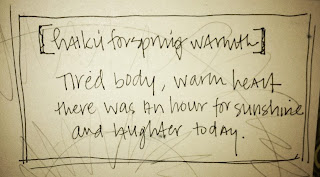 [haiku for spring warmth]
Tired body, warm heart
there was an hour for sunshine
and laughter today.